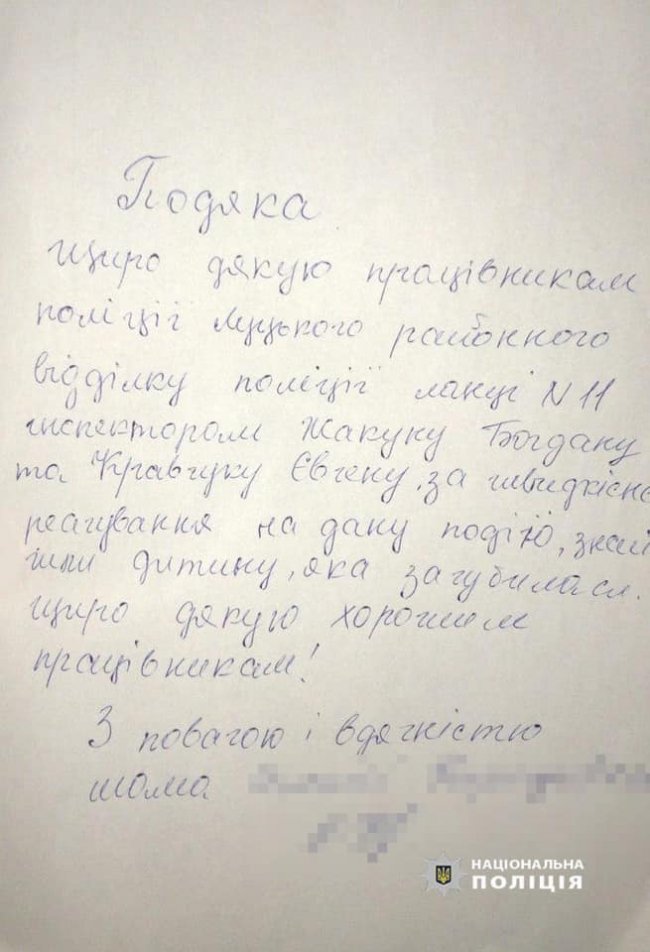 Подяка
Щиро дякую працівникам
поліції Луцького районного
відділку поліції ланці №11
інспектором Жакуну Богдану
та Кравчуку Євгену, за швидкісне
реагування на дану подію, знай
шли дитину, яка загубилася.
Щиро дякую хорошим
працівникам!
З повагою і вдячністю
мама
НАЦІОНАЛЬНА
ПОЛІЦІЯ